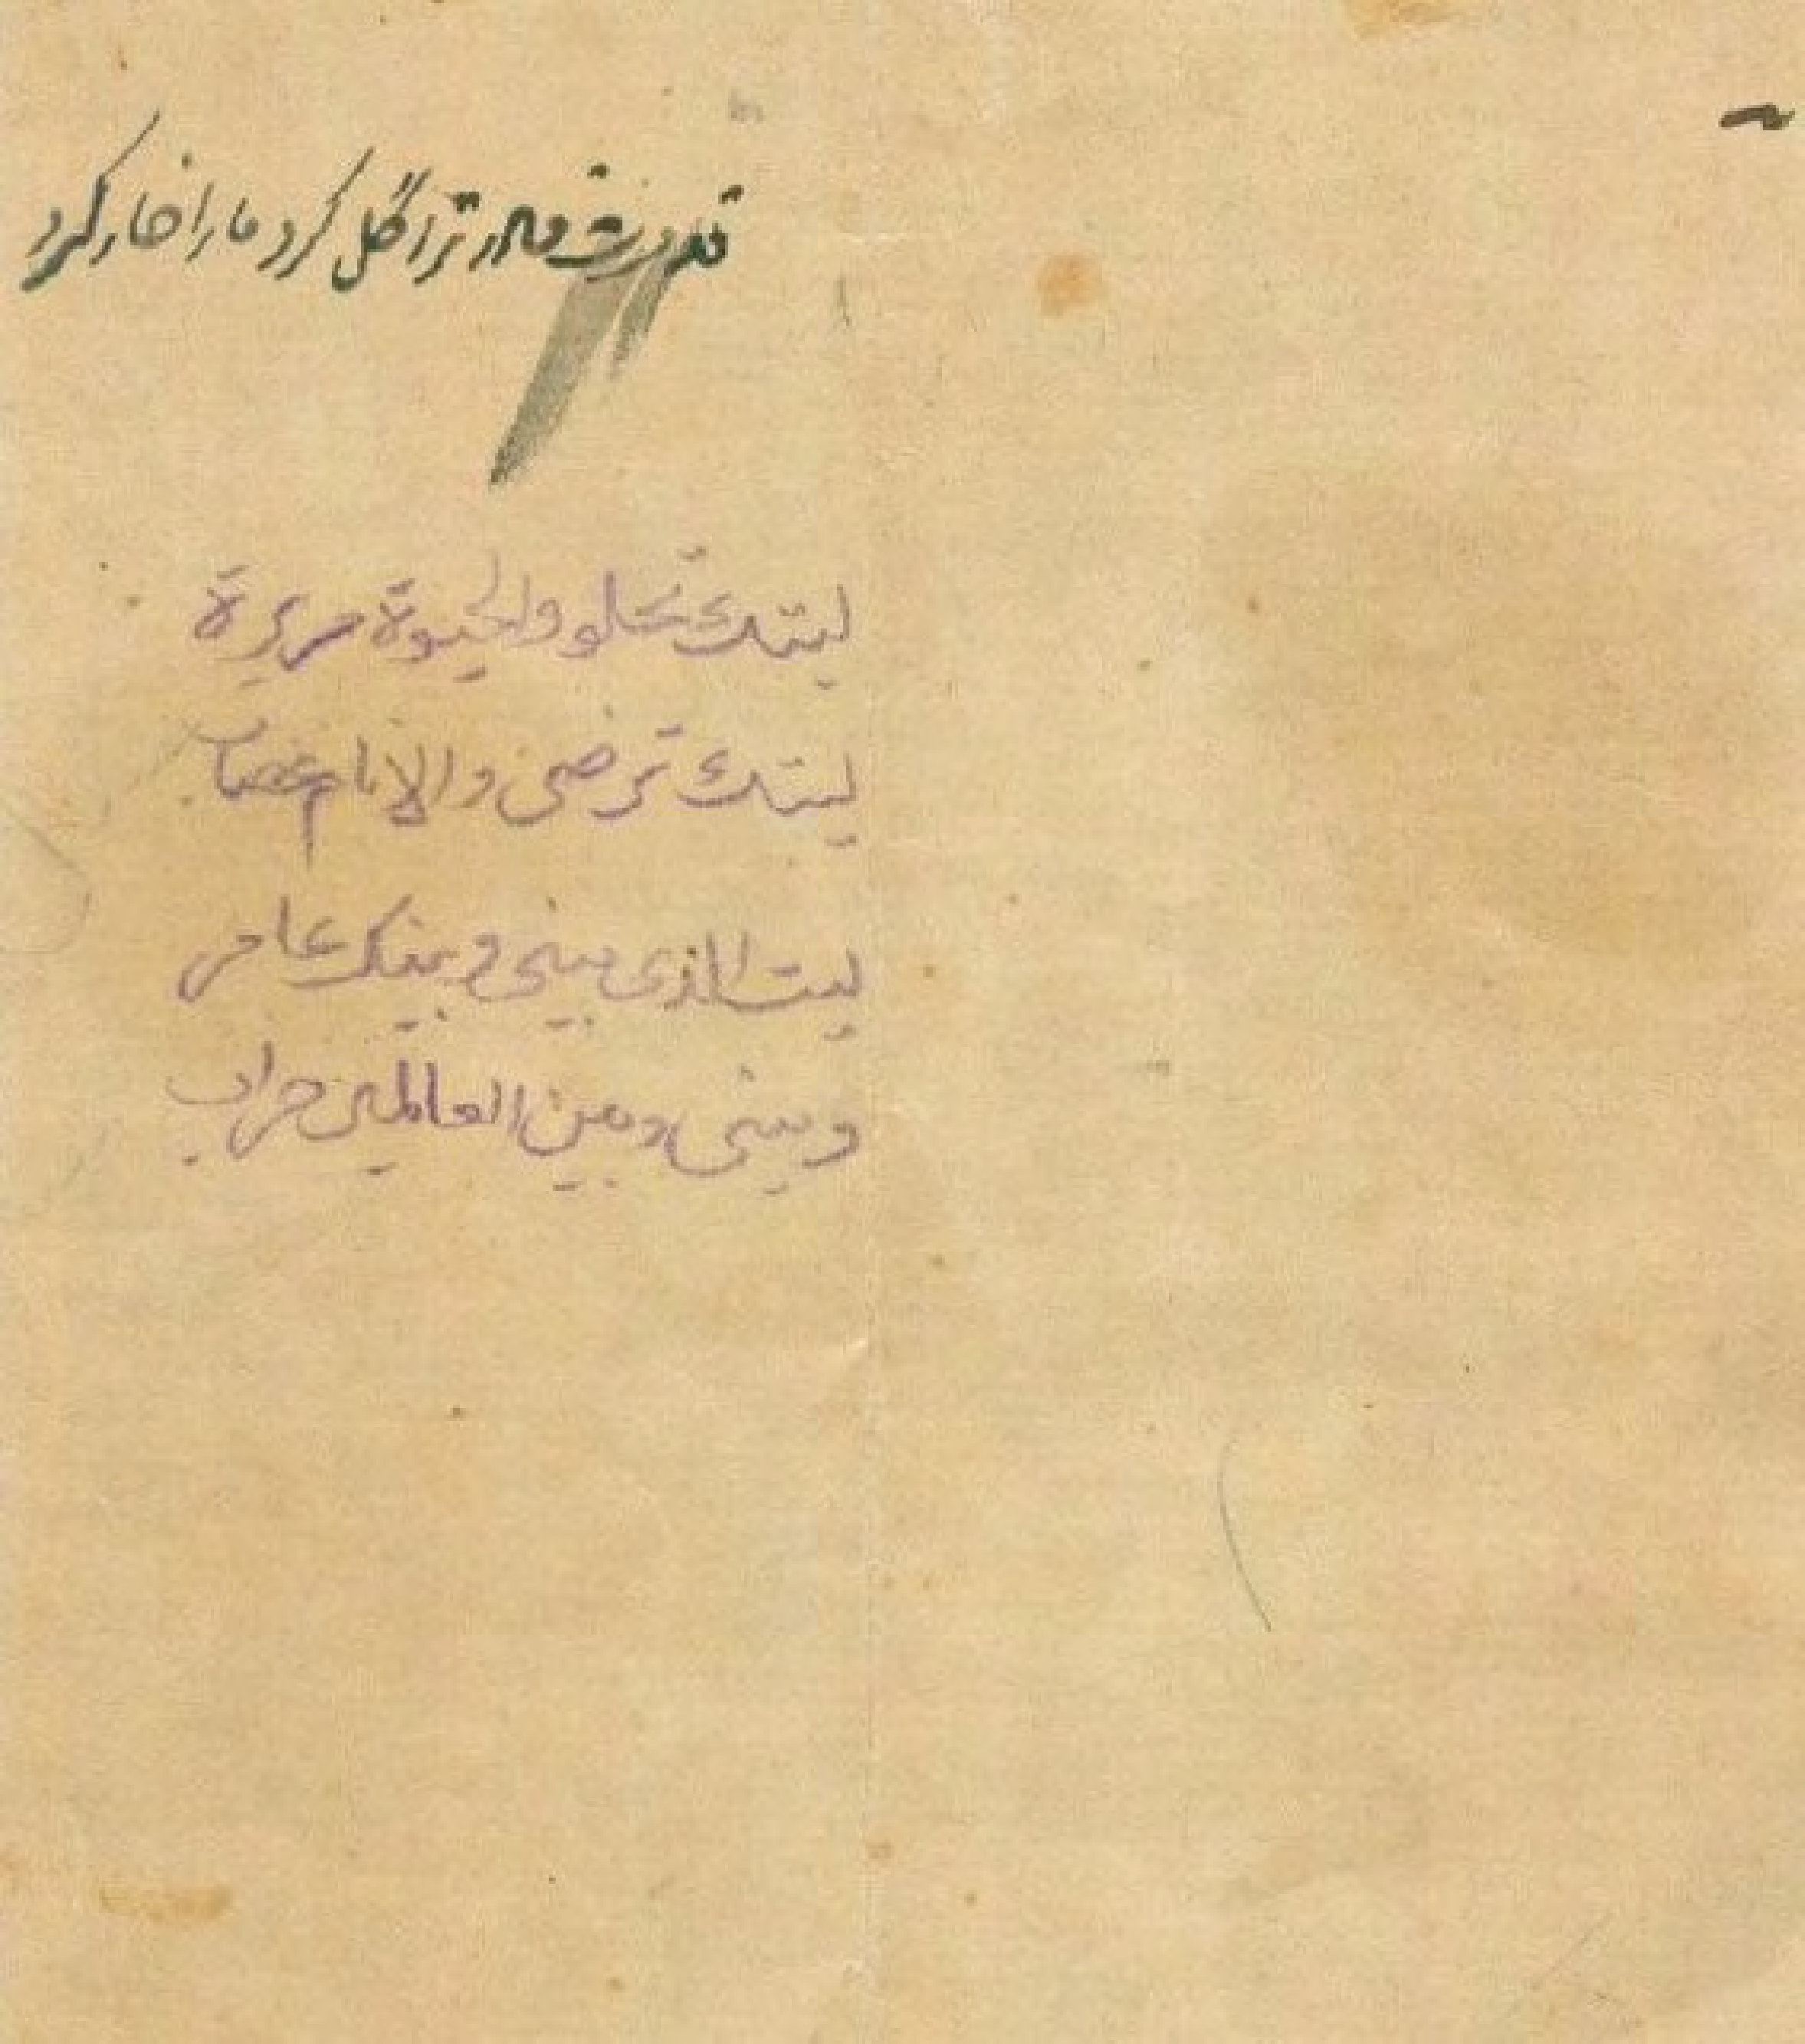 قدرت قادر ترا گل کرد ما را خار کرد
ليتك تحلو والحيوة مريرة
ليتك ترضى والانام غضاب
ليت الذى بينى وبينك عامر
وبينى وبين العالمين خراب